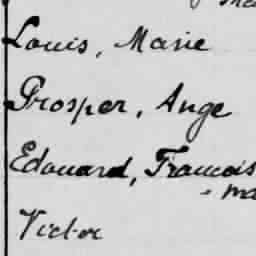 Louis, Marie
Prosper, Ange
Edouard, Francois
- ma
Victor